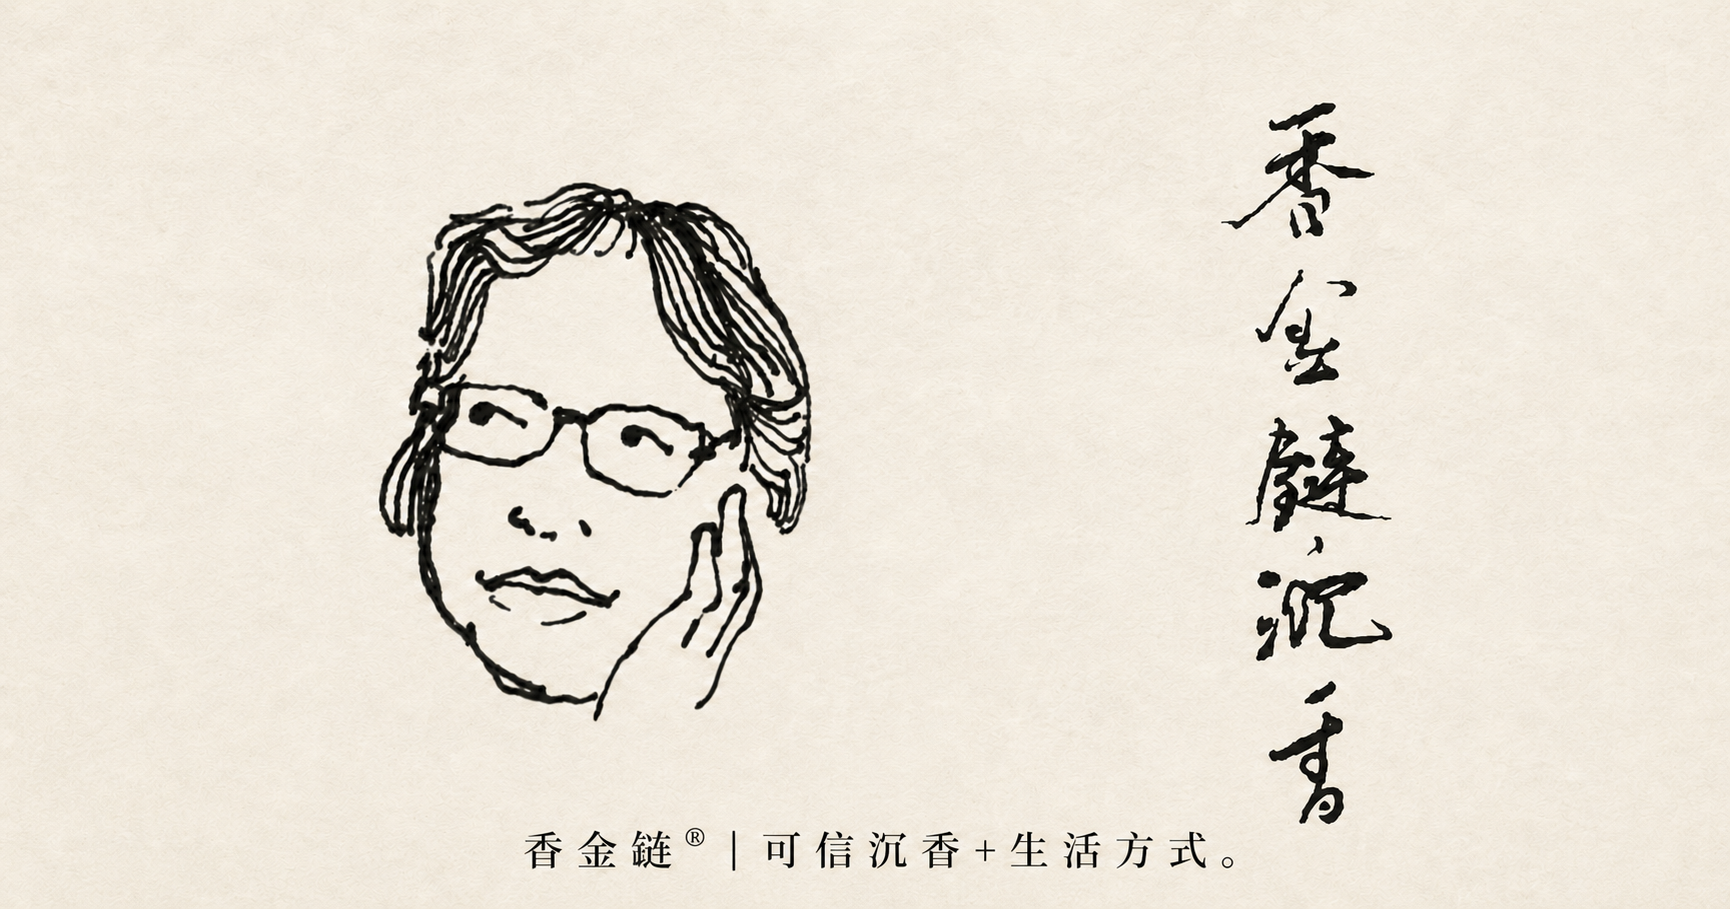 香金鏈沉香
香金鏈®|可信沉香+生活方式。